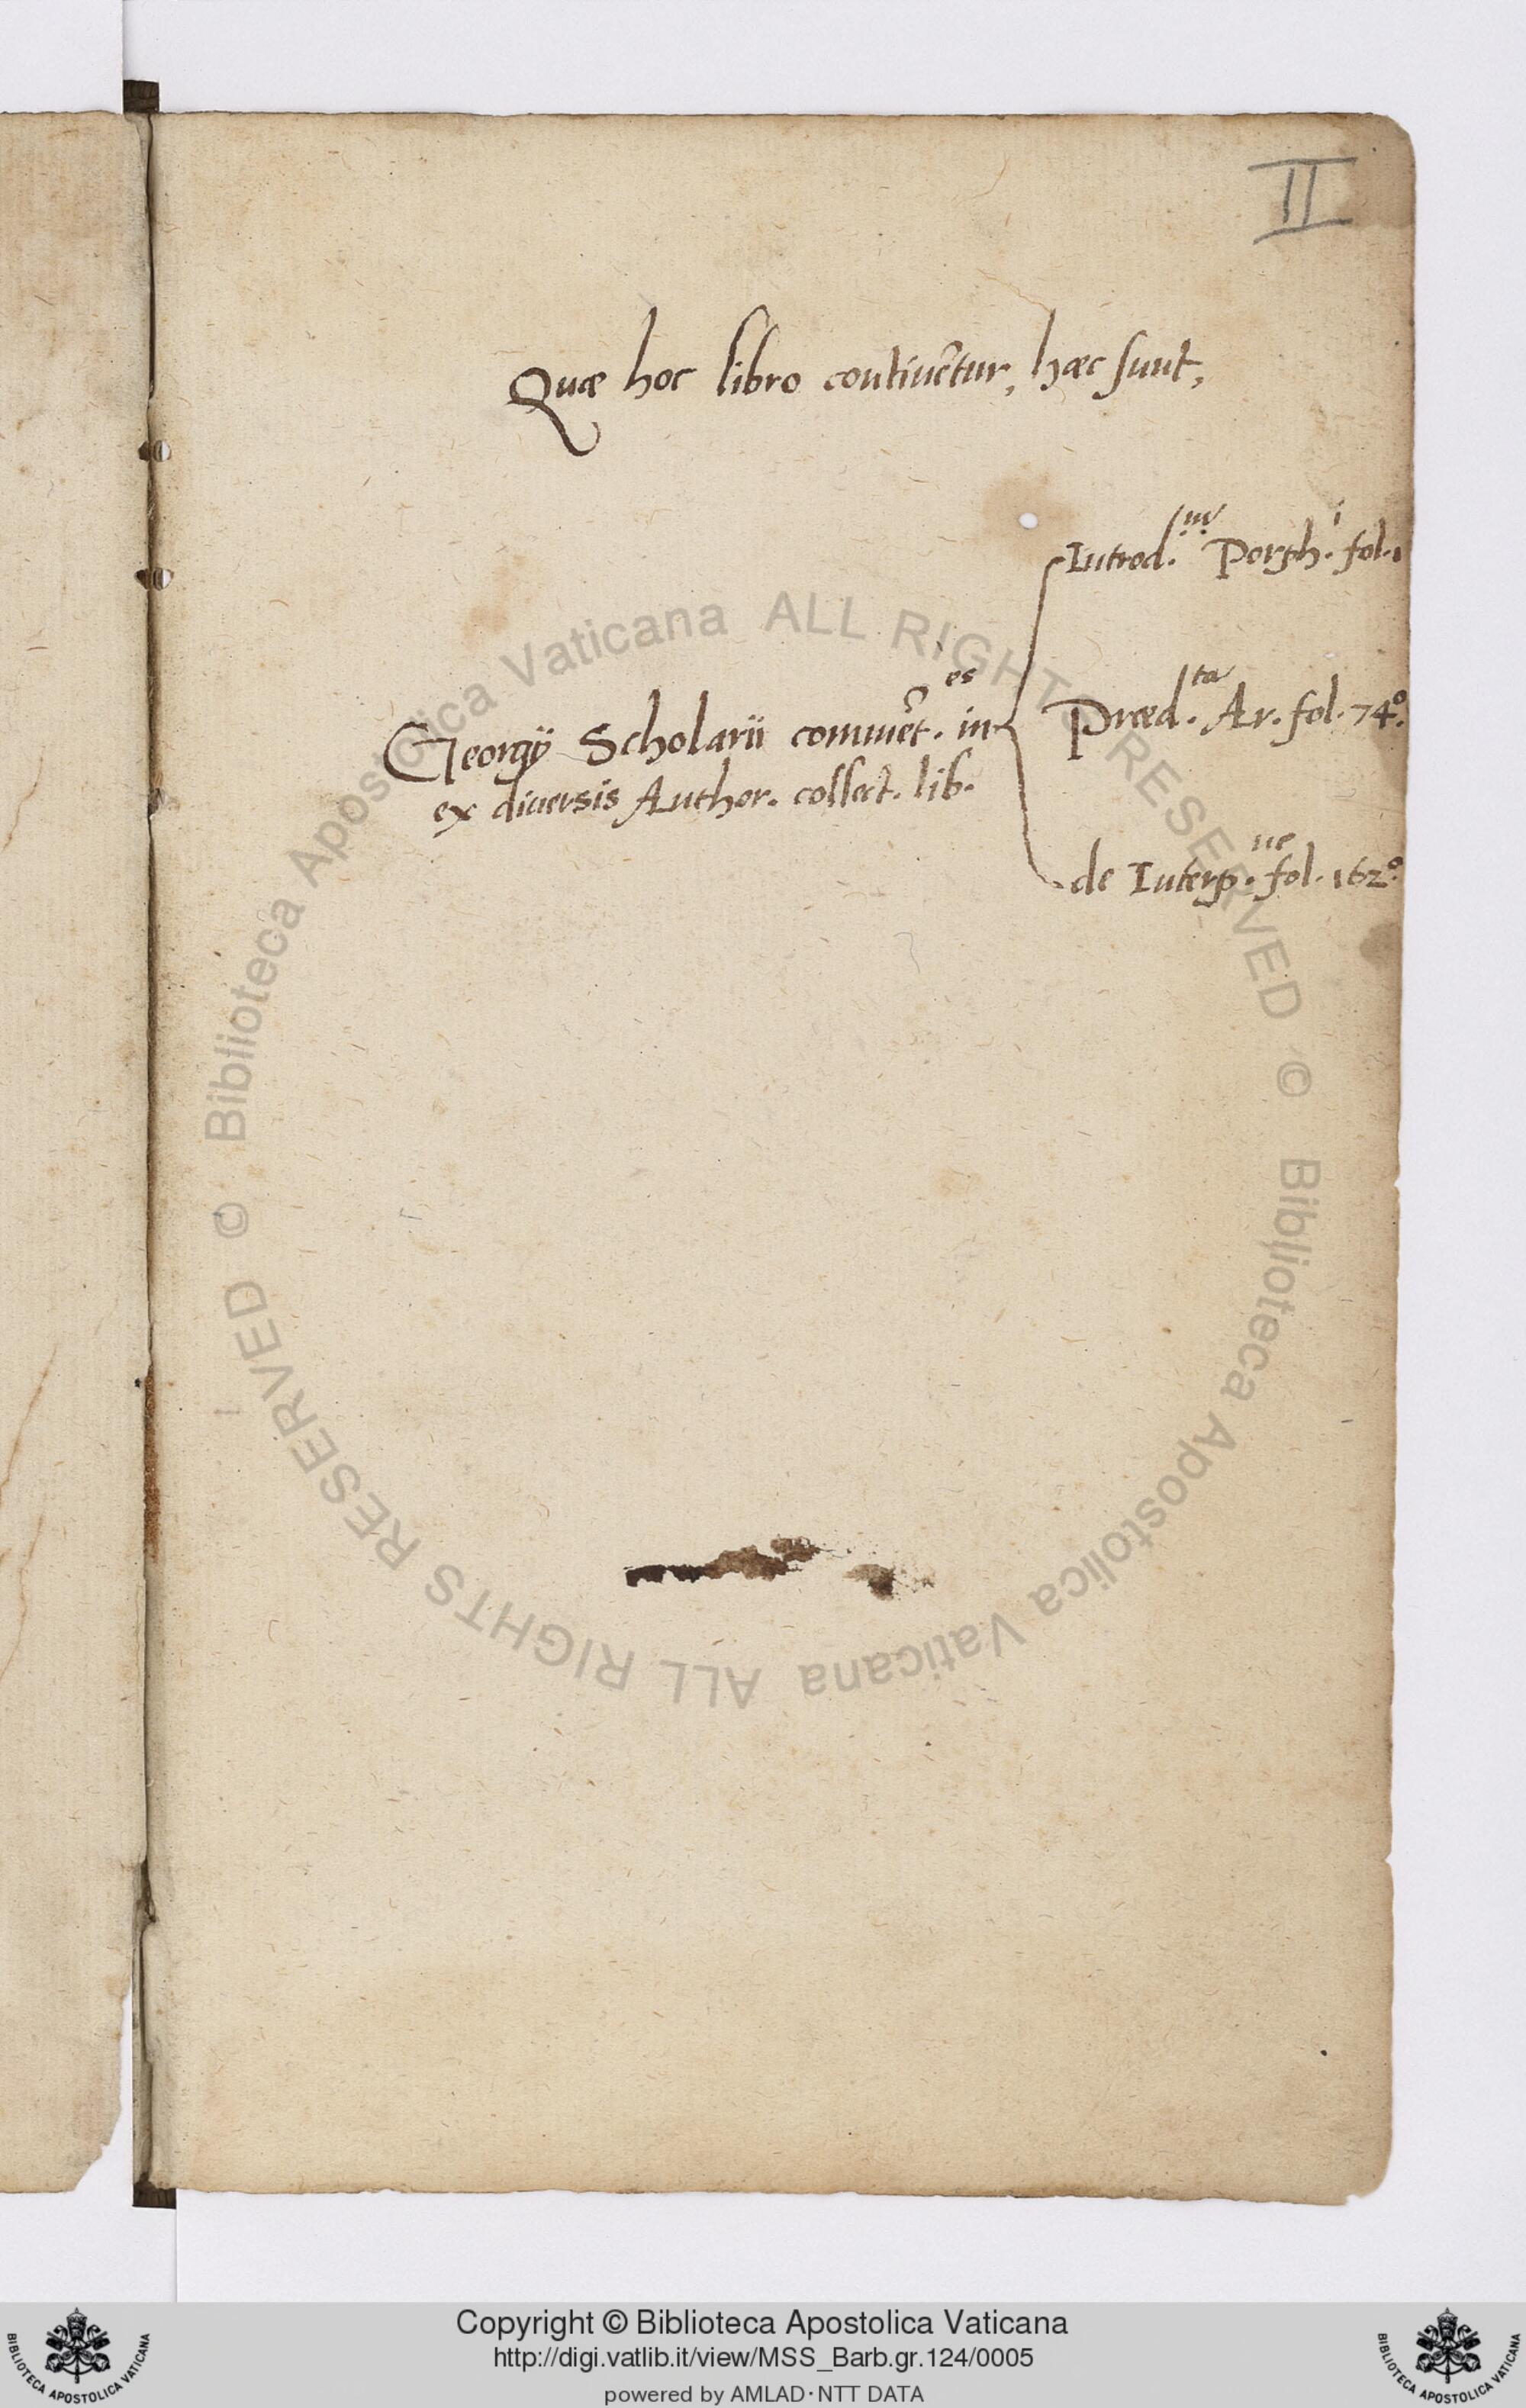 II
Quæ hoc libro continẽtur, hæc sunt,
Introd.m Porph.i fol. 1
Georgÿ Scholarii commẽt.es in Præd.ta Ar. fol. 74º.
ex diuersis Author. collect. lib.
de Interp.ne fol. 162º.
© Biblioteca Apostolica Vaticana ALL RIGHTS RESERVED
© Biblioteca Apostolica Vaticana ALL RIGHTS RESERVED
BIBLIOTECA APOSTOLICA VATICANA
Copyright © Biblioteca Apostolica Vaticana
http://digi.vatlib.it/view/MSS_Barb.gr.124/0005
powered by AMLAD·NTT DATA
BIBLIOTECA APOSTOLICA VATICANA